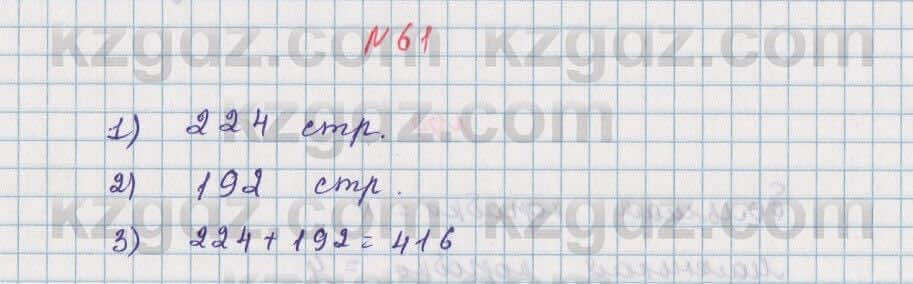 № 61
1) 224 стр.
2) 192 стр.
3) 224 + 192 = 416
kzgdz.com kzgdz.com
kzgdz.com
kzgdz.com kzgdz.com